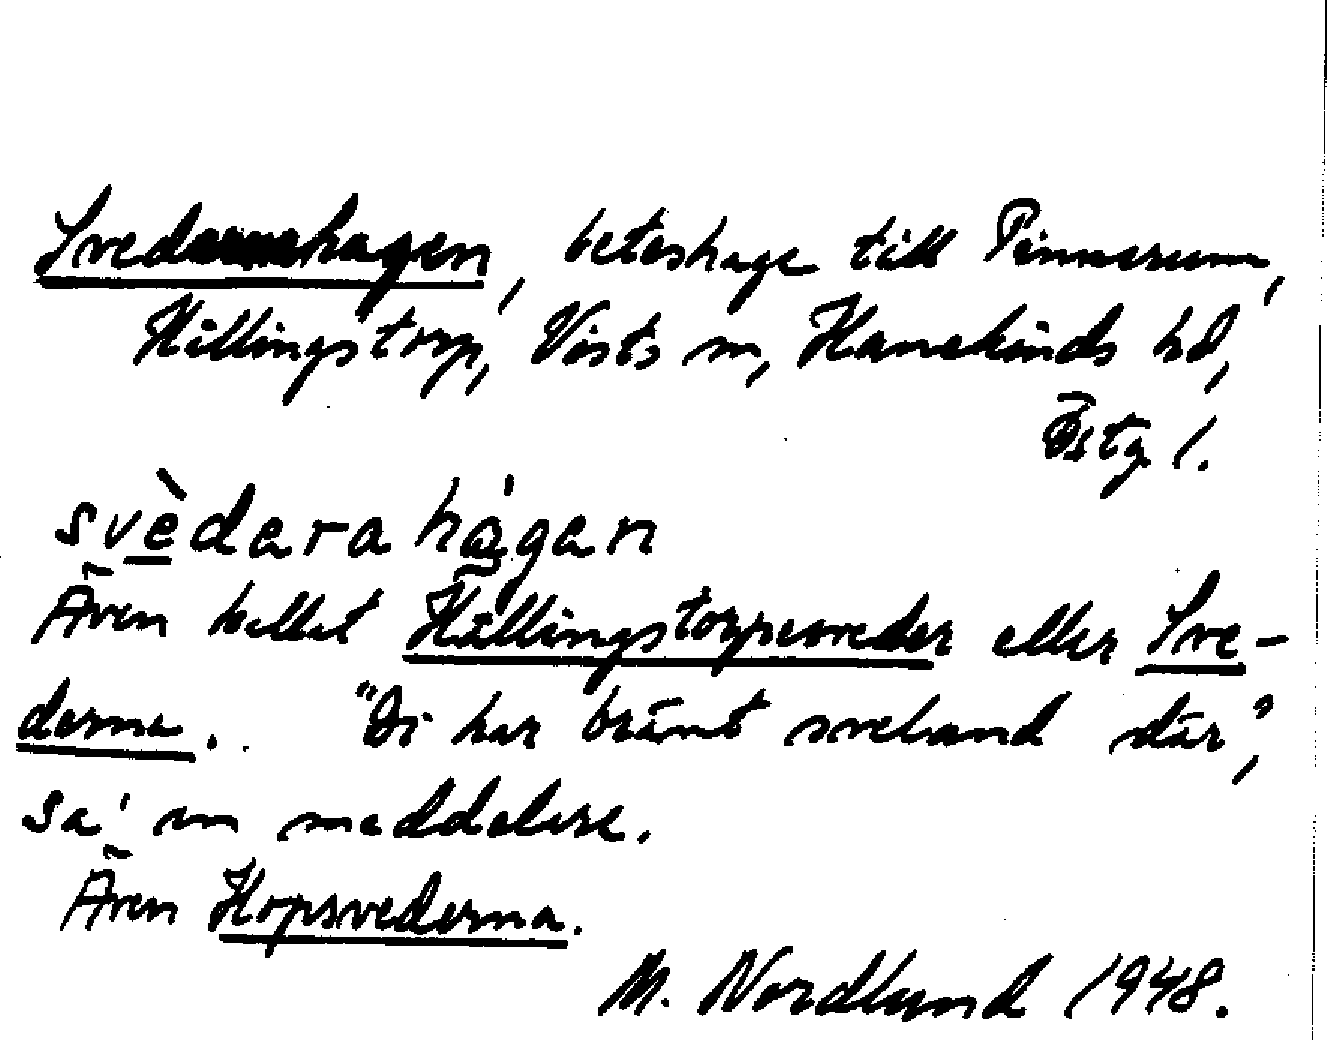 Svedernahagen, beteshage till Pinnarum,
Hällingstorp, Vists sn, Hanekinds hd,
Östg l.
svèdara hágen
Även kallat Hällingstorpsveder eller Sve-
derna. "Di har bränt sveland där",
sa' en meddelare.
Även Hopsvederna.
M. Nordlund 1948.